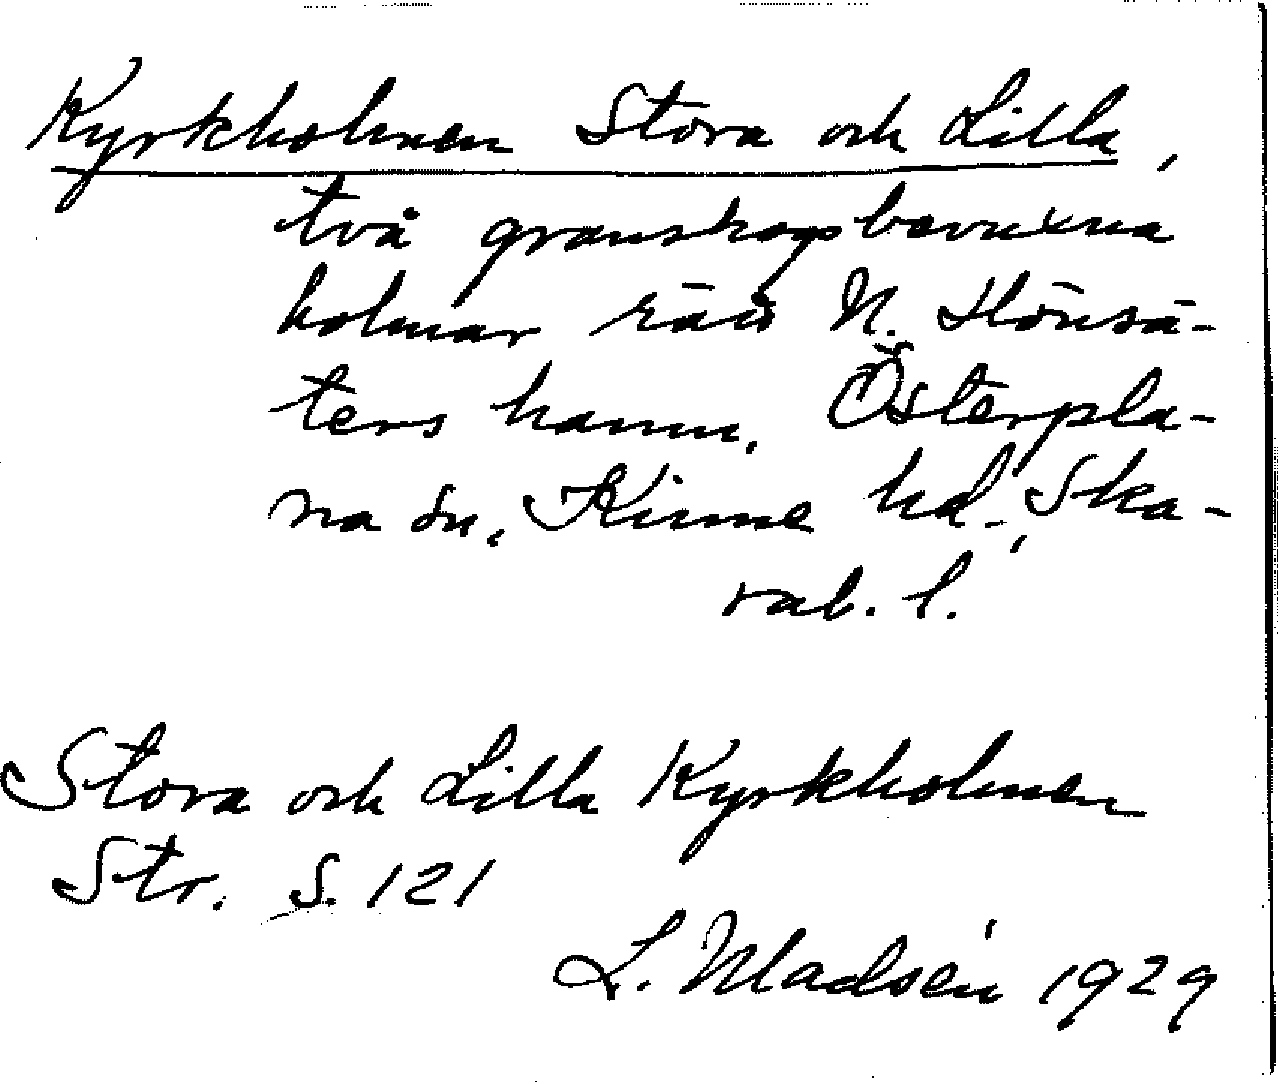 Kyrkholmen Stora och Lilla,
två granskogsbevuxna
holmar räw N. Hönsä-
ters hamn, Österpla-
na sn, Kinne hd., Ska-
rab. l.
Stora och Lilla Kyrkholmen
Str. S. 121
L. Madsén 1929